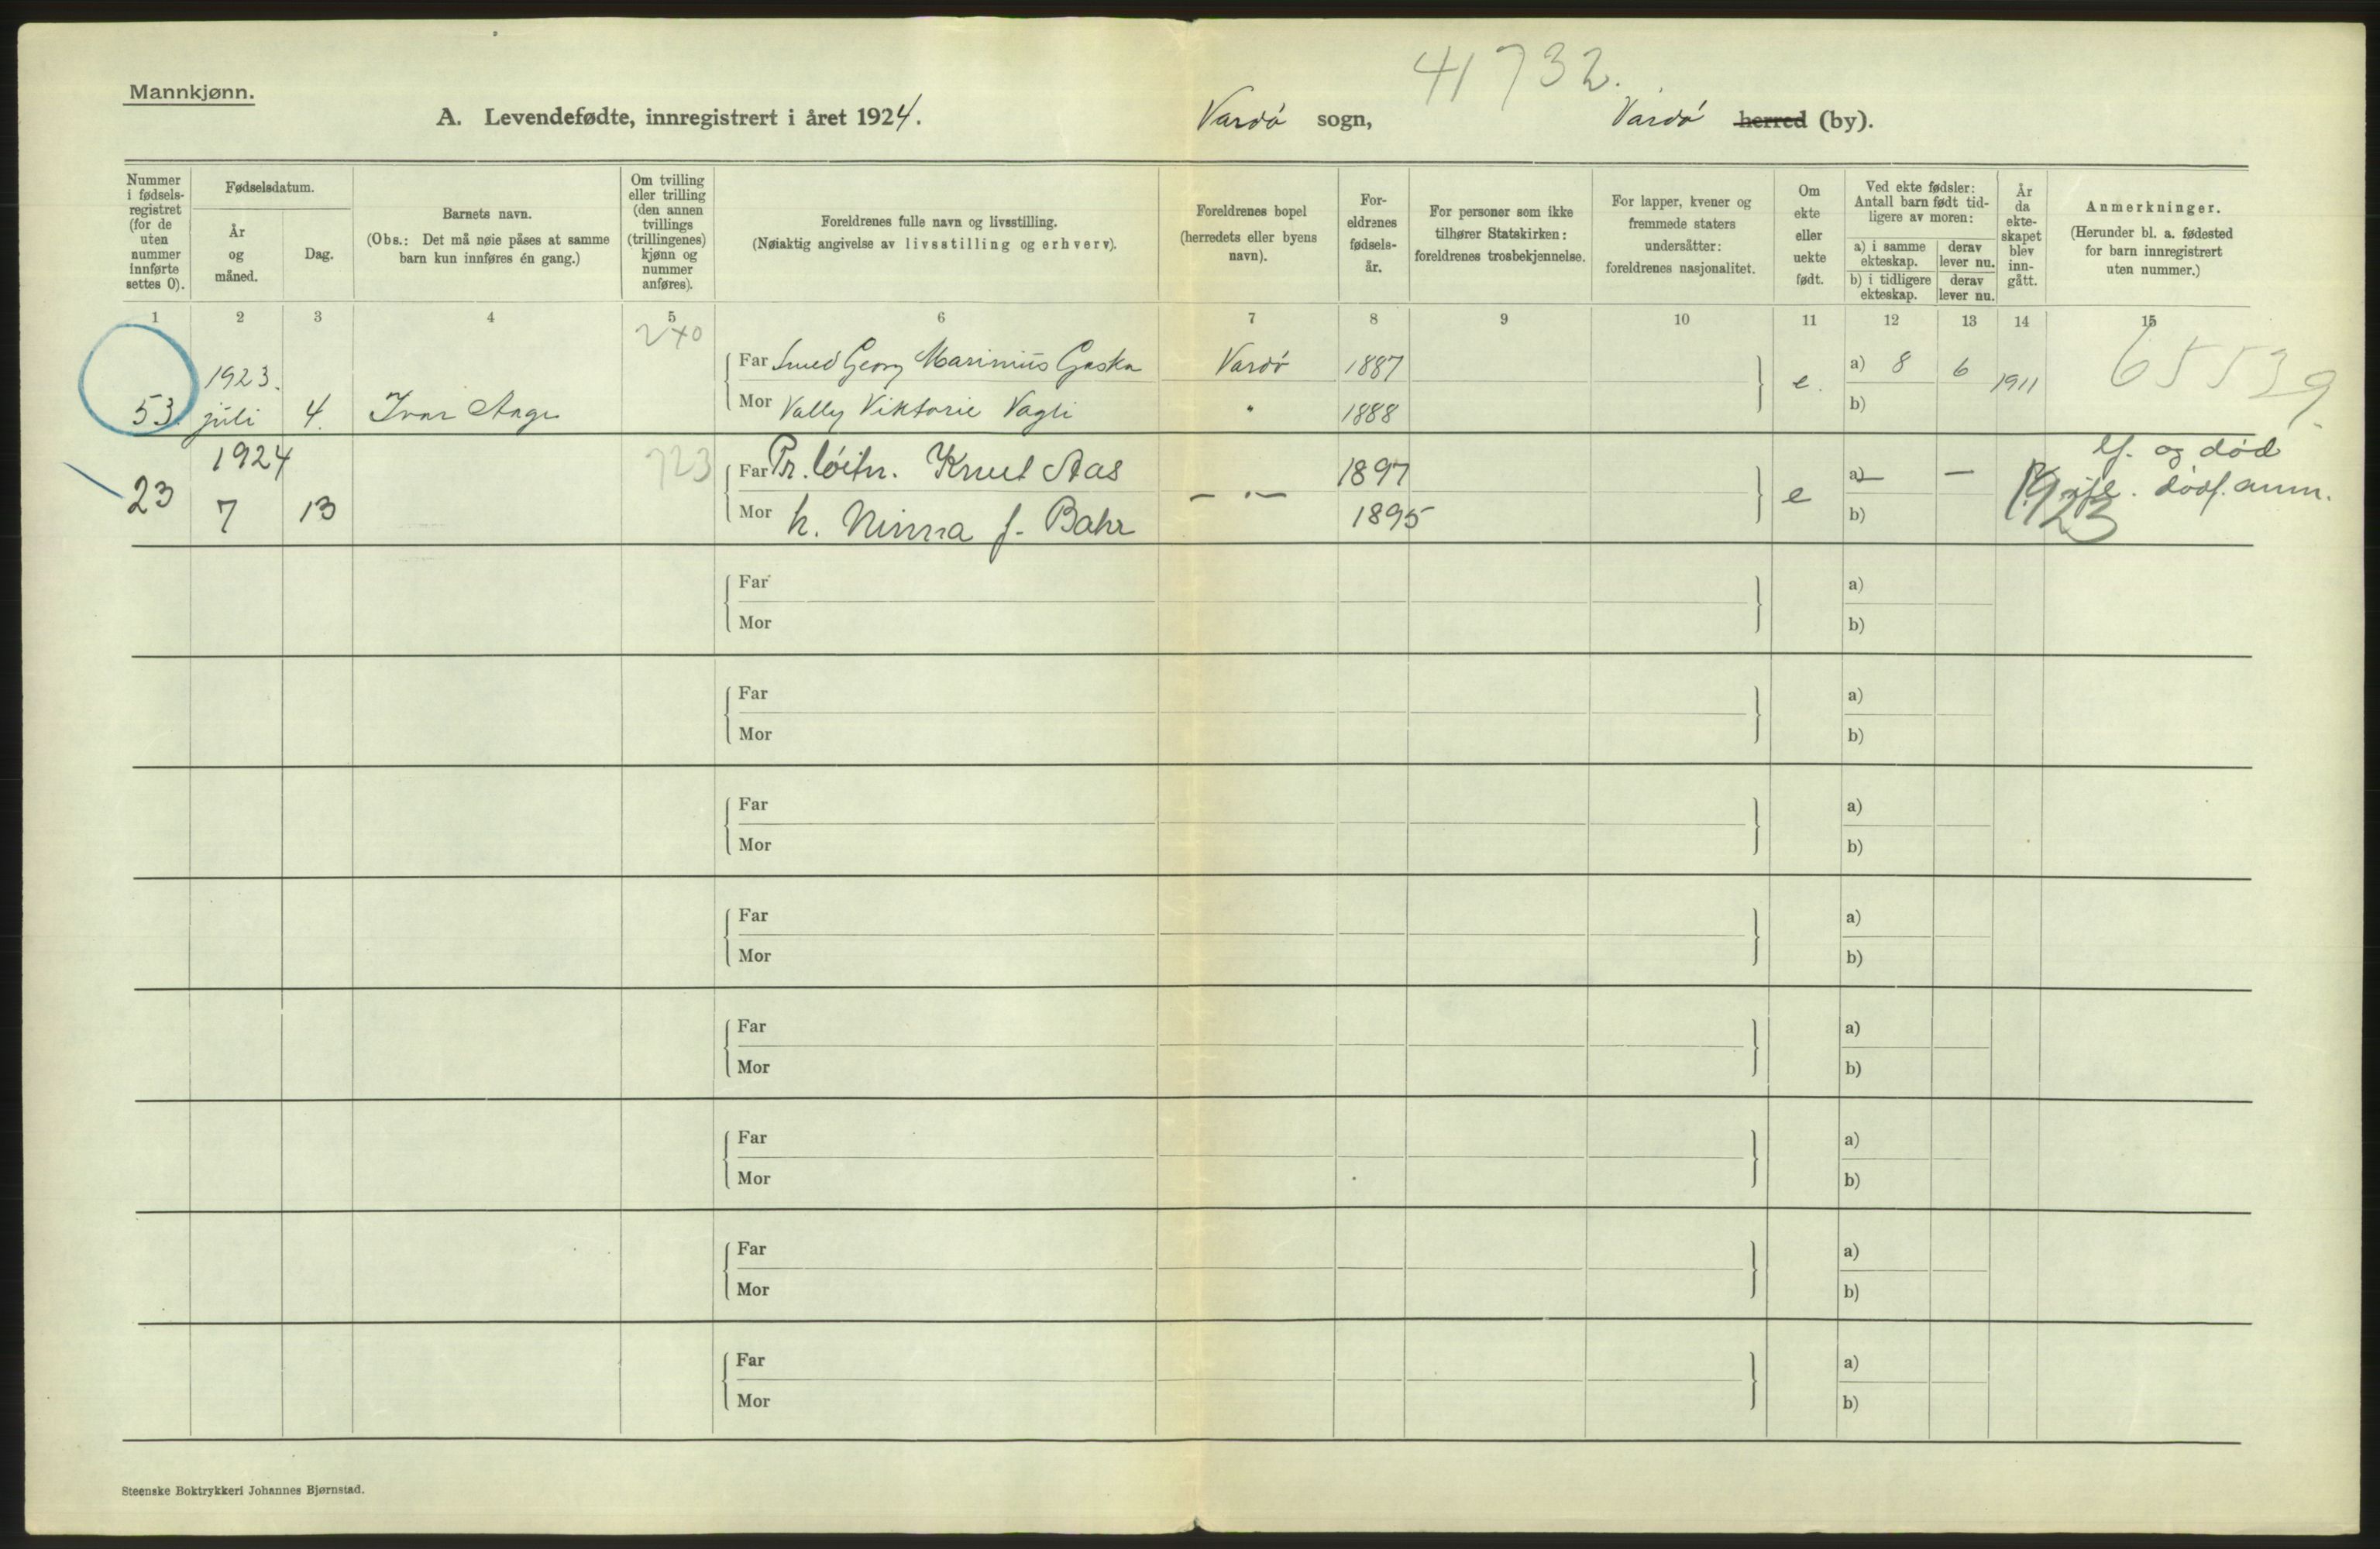 41732.
Mannkjønn.
A. Levendefødte, innregistrert i året 1924.
Vardö sogn,
Vardö herred (by).
Nummer i fødsels-registret (for de uten nummer innførte settes 0).
Fødselsdatum.
År og måned.
Dag.
Barnets navn.
(Obs.: Det må nøie påses at samme barn kun innføres én gang.)
Om tvilling eller trilling (den annen tvillings (trillingenes) kjønn og nummer anføres).
Foreldrenes fulle navn og livsstilling.
(Nøiaktig angivelse av livsstilling og erhverv).
Foreldrenes bopel (herredets eller byens navn).
For-eldrenes fødsels-år.
For personer som ikke tilhører Statskirken: foreldrenes trosbekjennelse.
For lapper, kvener og fremmede staters undersåtter: foreldrenes nasjonalitet.
Om ekte eller uekte født.
Ved ekte fødsler: Antall barn født tid-ligere av moren:
a) i samme ekteskap.
derav lever nu.
b) i tidligere ekteskap.
derav lever nu.
År da ekte-skapet blev inn-gått.
Anmerkninger.
(Herunder bl. a. fødested for barn innregistrert uten nummer.)
1 2 3 4 5 6 7 8 9 10 11 12 13 14 15
240
Far Smed Georg Marinius Gaska Vardö 1887 a) 8 6
53. 1923. juli 4. Ivar Aage e. 1911 65539
Mor Vally Viktorie Vagli " 1888 b)
1924 723 Far Pr. löitn. Knut Aas 1897 a) — — lf. og död
23 7 13 — " — e 1923 dödf. anm.
Mor h. Ninna f. Bahr 1895 b)
Far a)
Mor b)
Far a)
Mor b)
Far a)
Mor b)
Far a)
Mor b)
Far a)
Mor b)
Far a)
Mor b)
Far a)
Mor b)
Far a)
Mor b)
Steenske Boktrykkeri Johannes Bjørnstad.